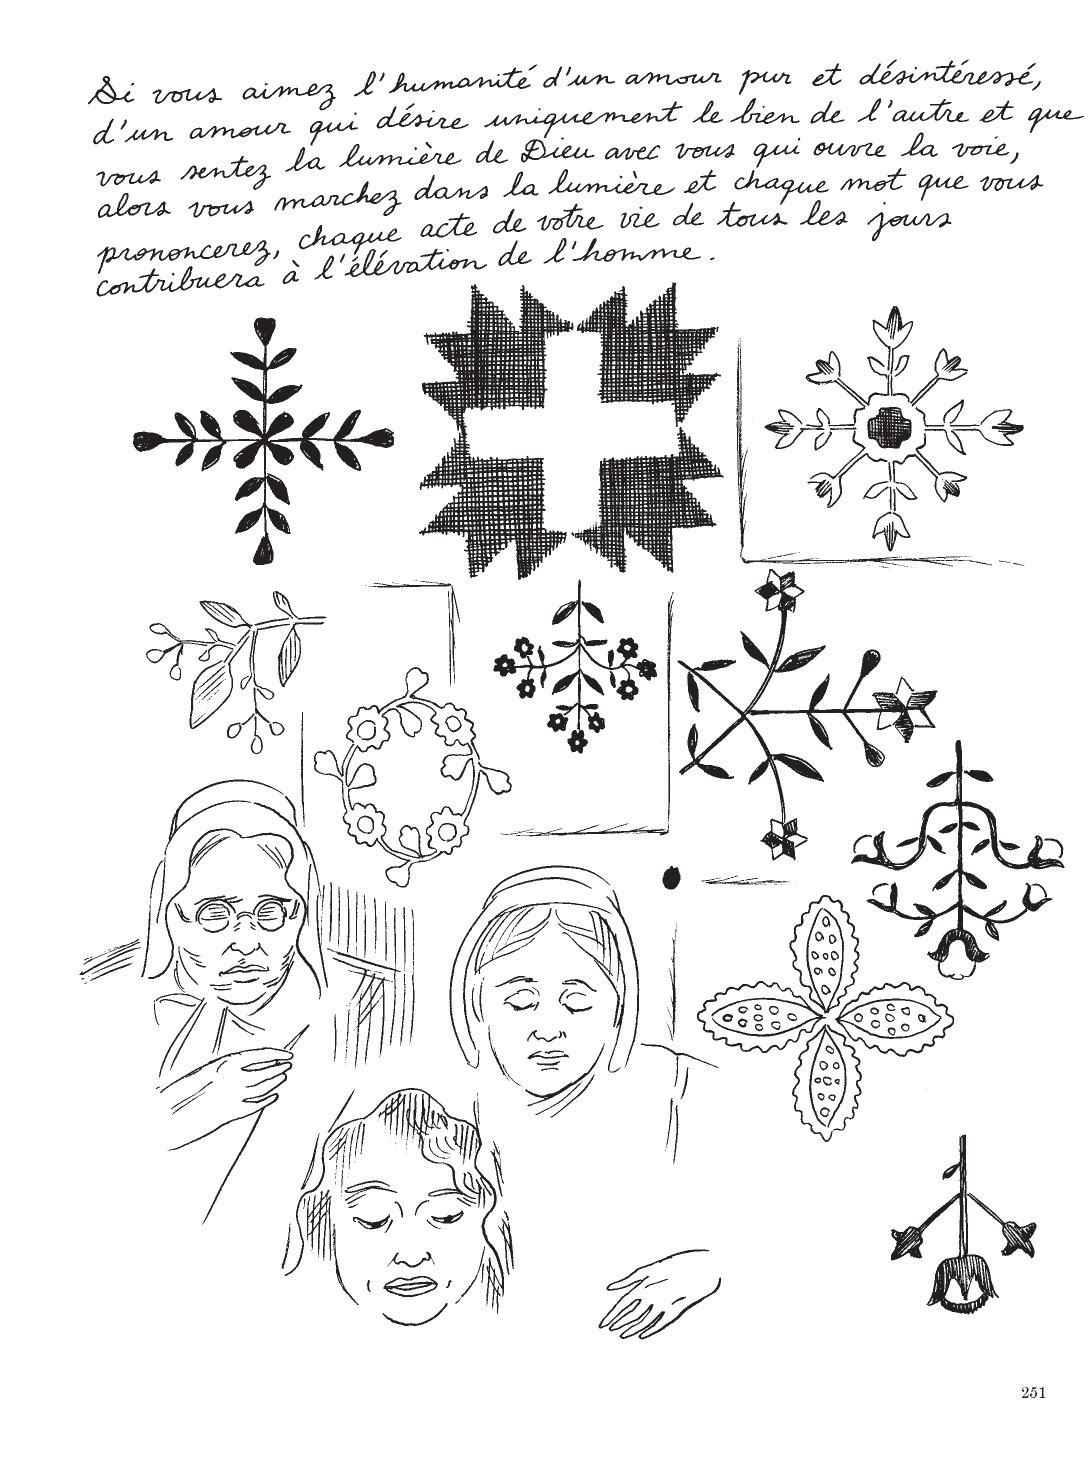 Si vous aimez l'humanité d'un amour pur et désintéressé,
d'un amour qui désire uniquement le bien de l'autre et que
vous sentez la lumière de Dieu avec vous qui ouvre la voie,
alors vous marchez dans la lumière et chaque mot que vous
prononcerez, chaque acte de votre vie de tous les jours
contribuera à l'élévation de l'homme.
251